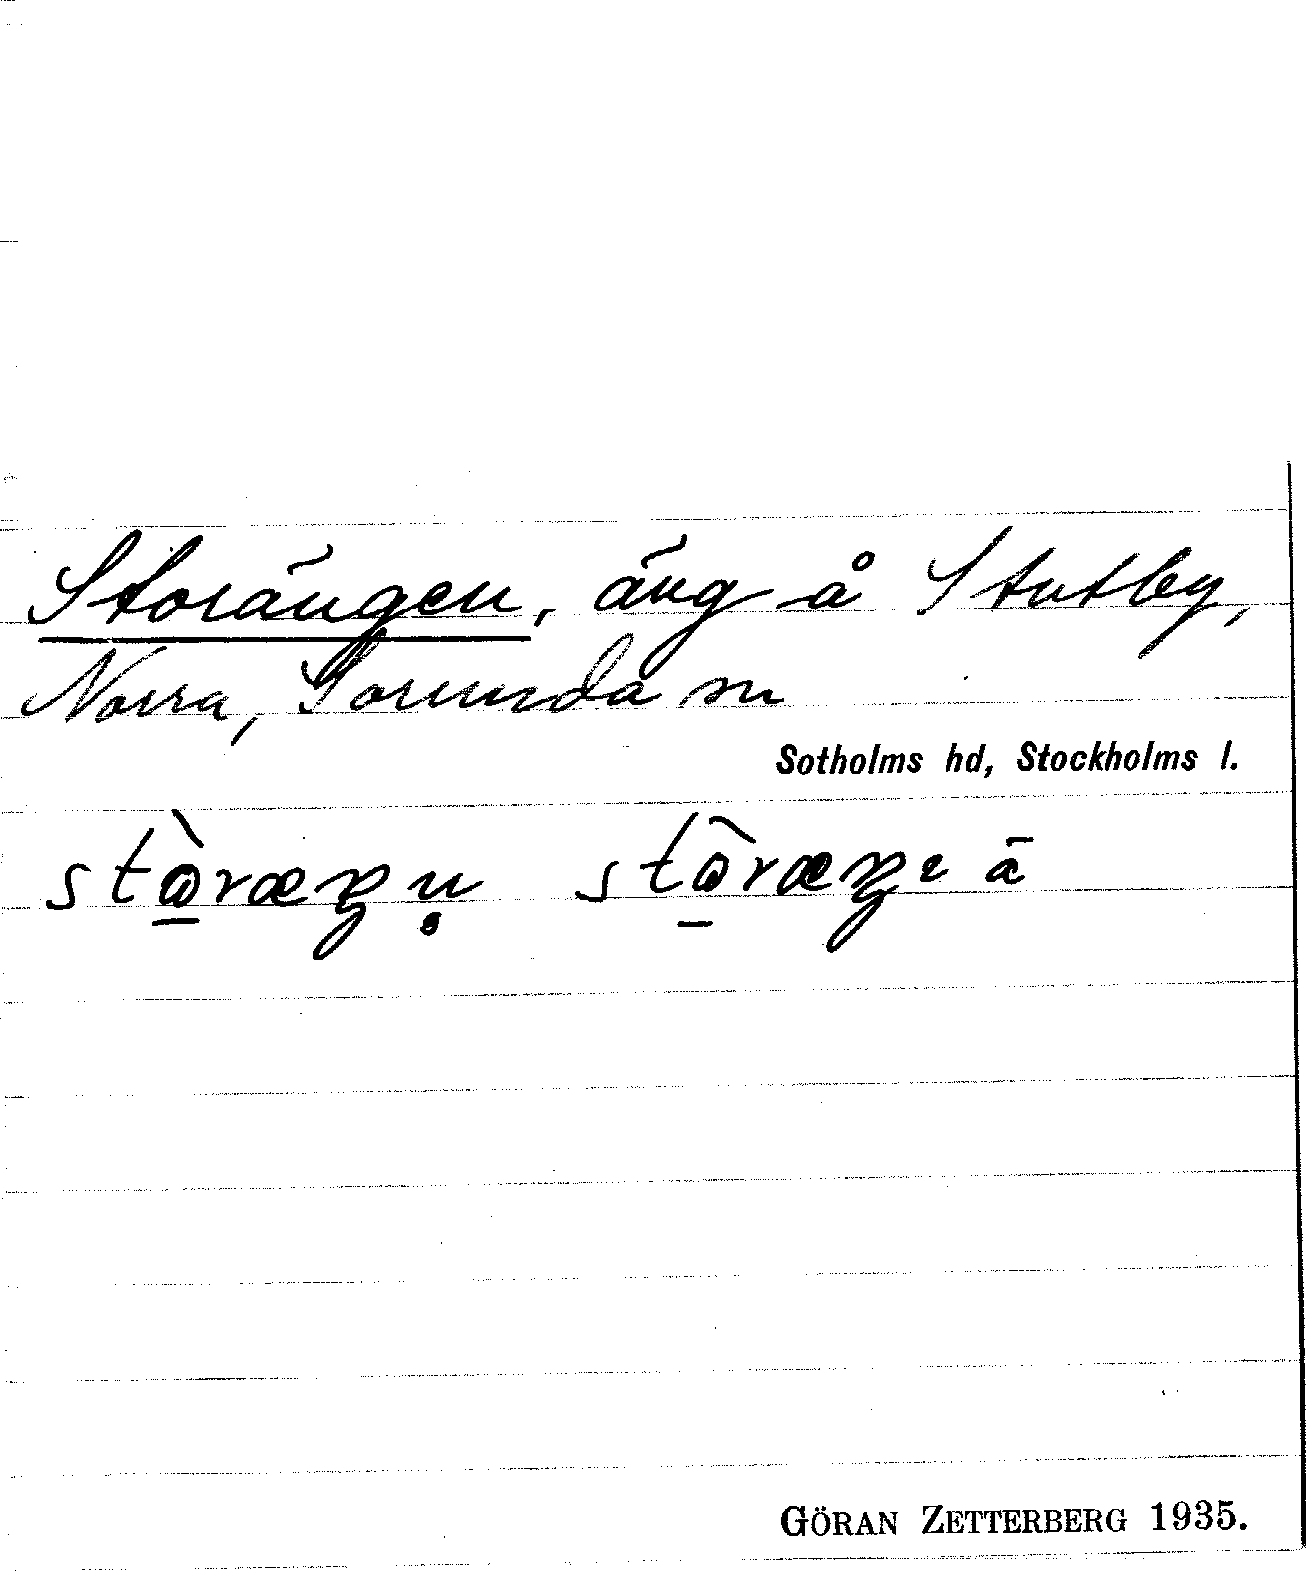 Storängen, äng å Stutby,
Norra, Sorunda sn
Sotholms hd, Stockholms l.
GÖRAN ZETTERBERG 1935.